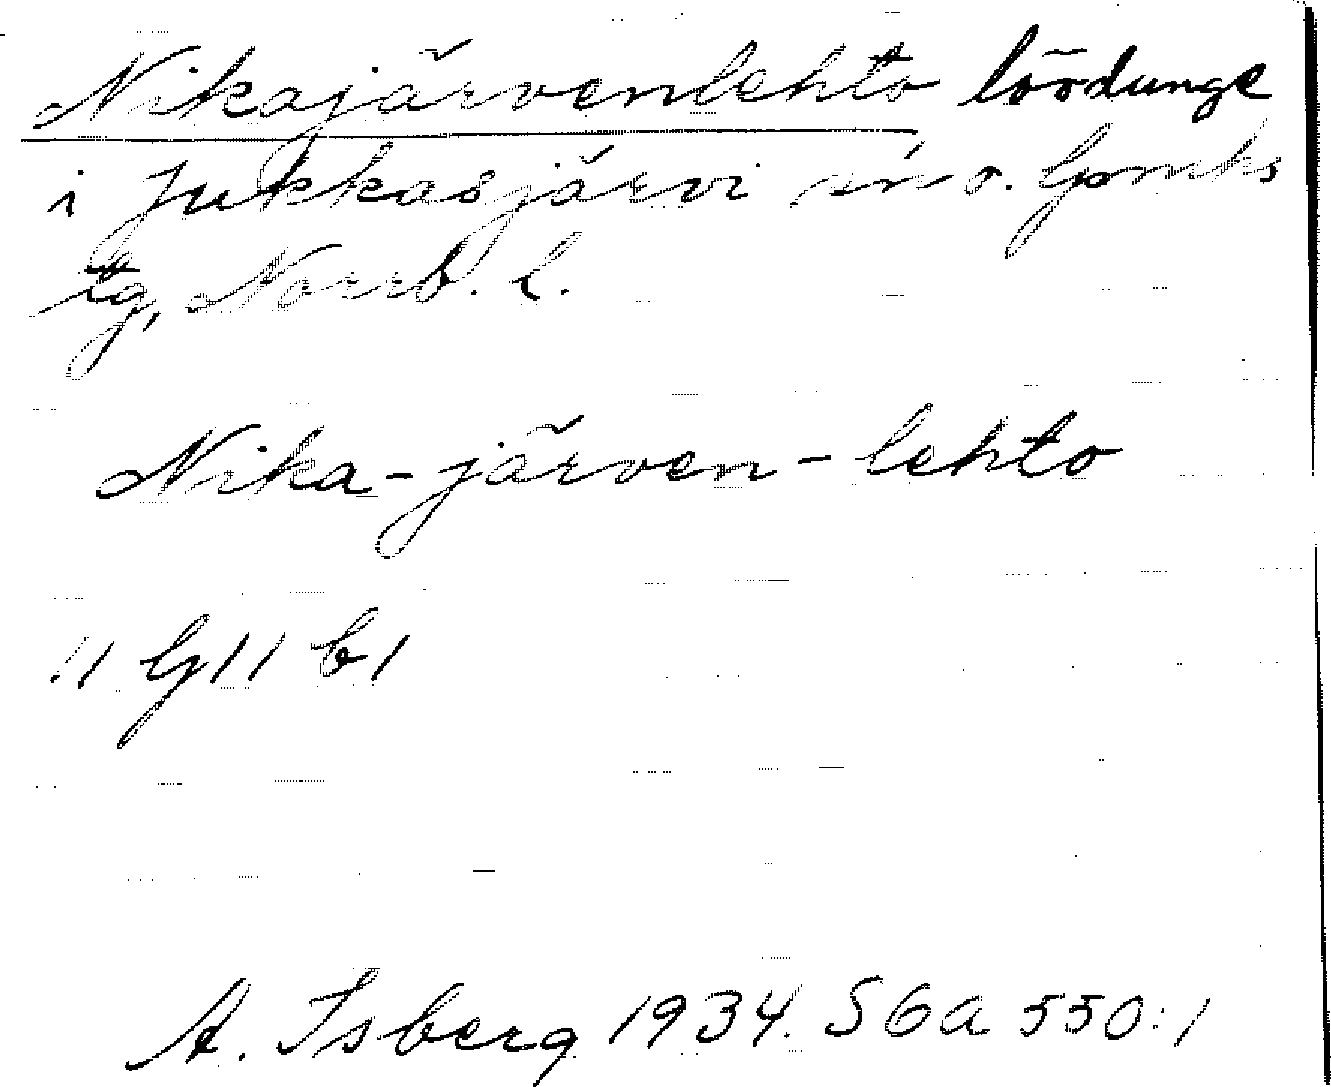 Nikajärvenlehto lövdunge
i Jukkasjärvi sn o. lpmks
tg, Norrb. l.
Nika-järven-lehto
11 G 11 b 1
A. Isberg 1934. SGA 550:1